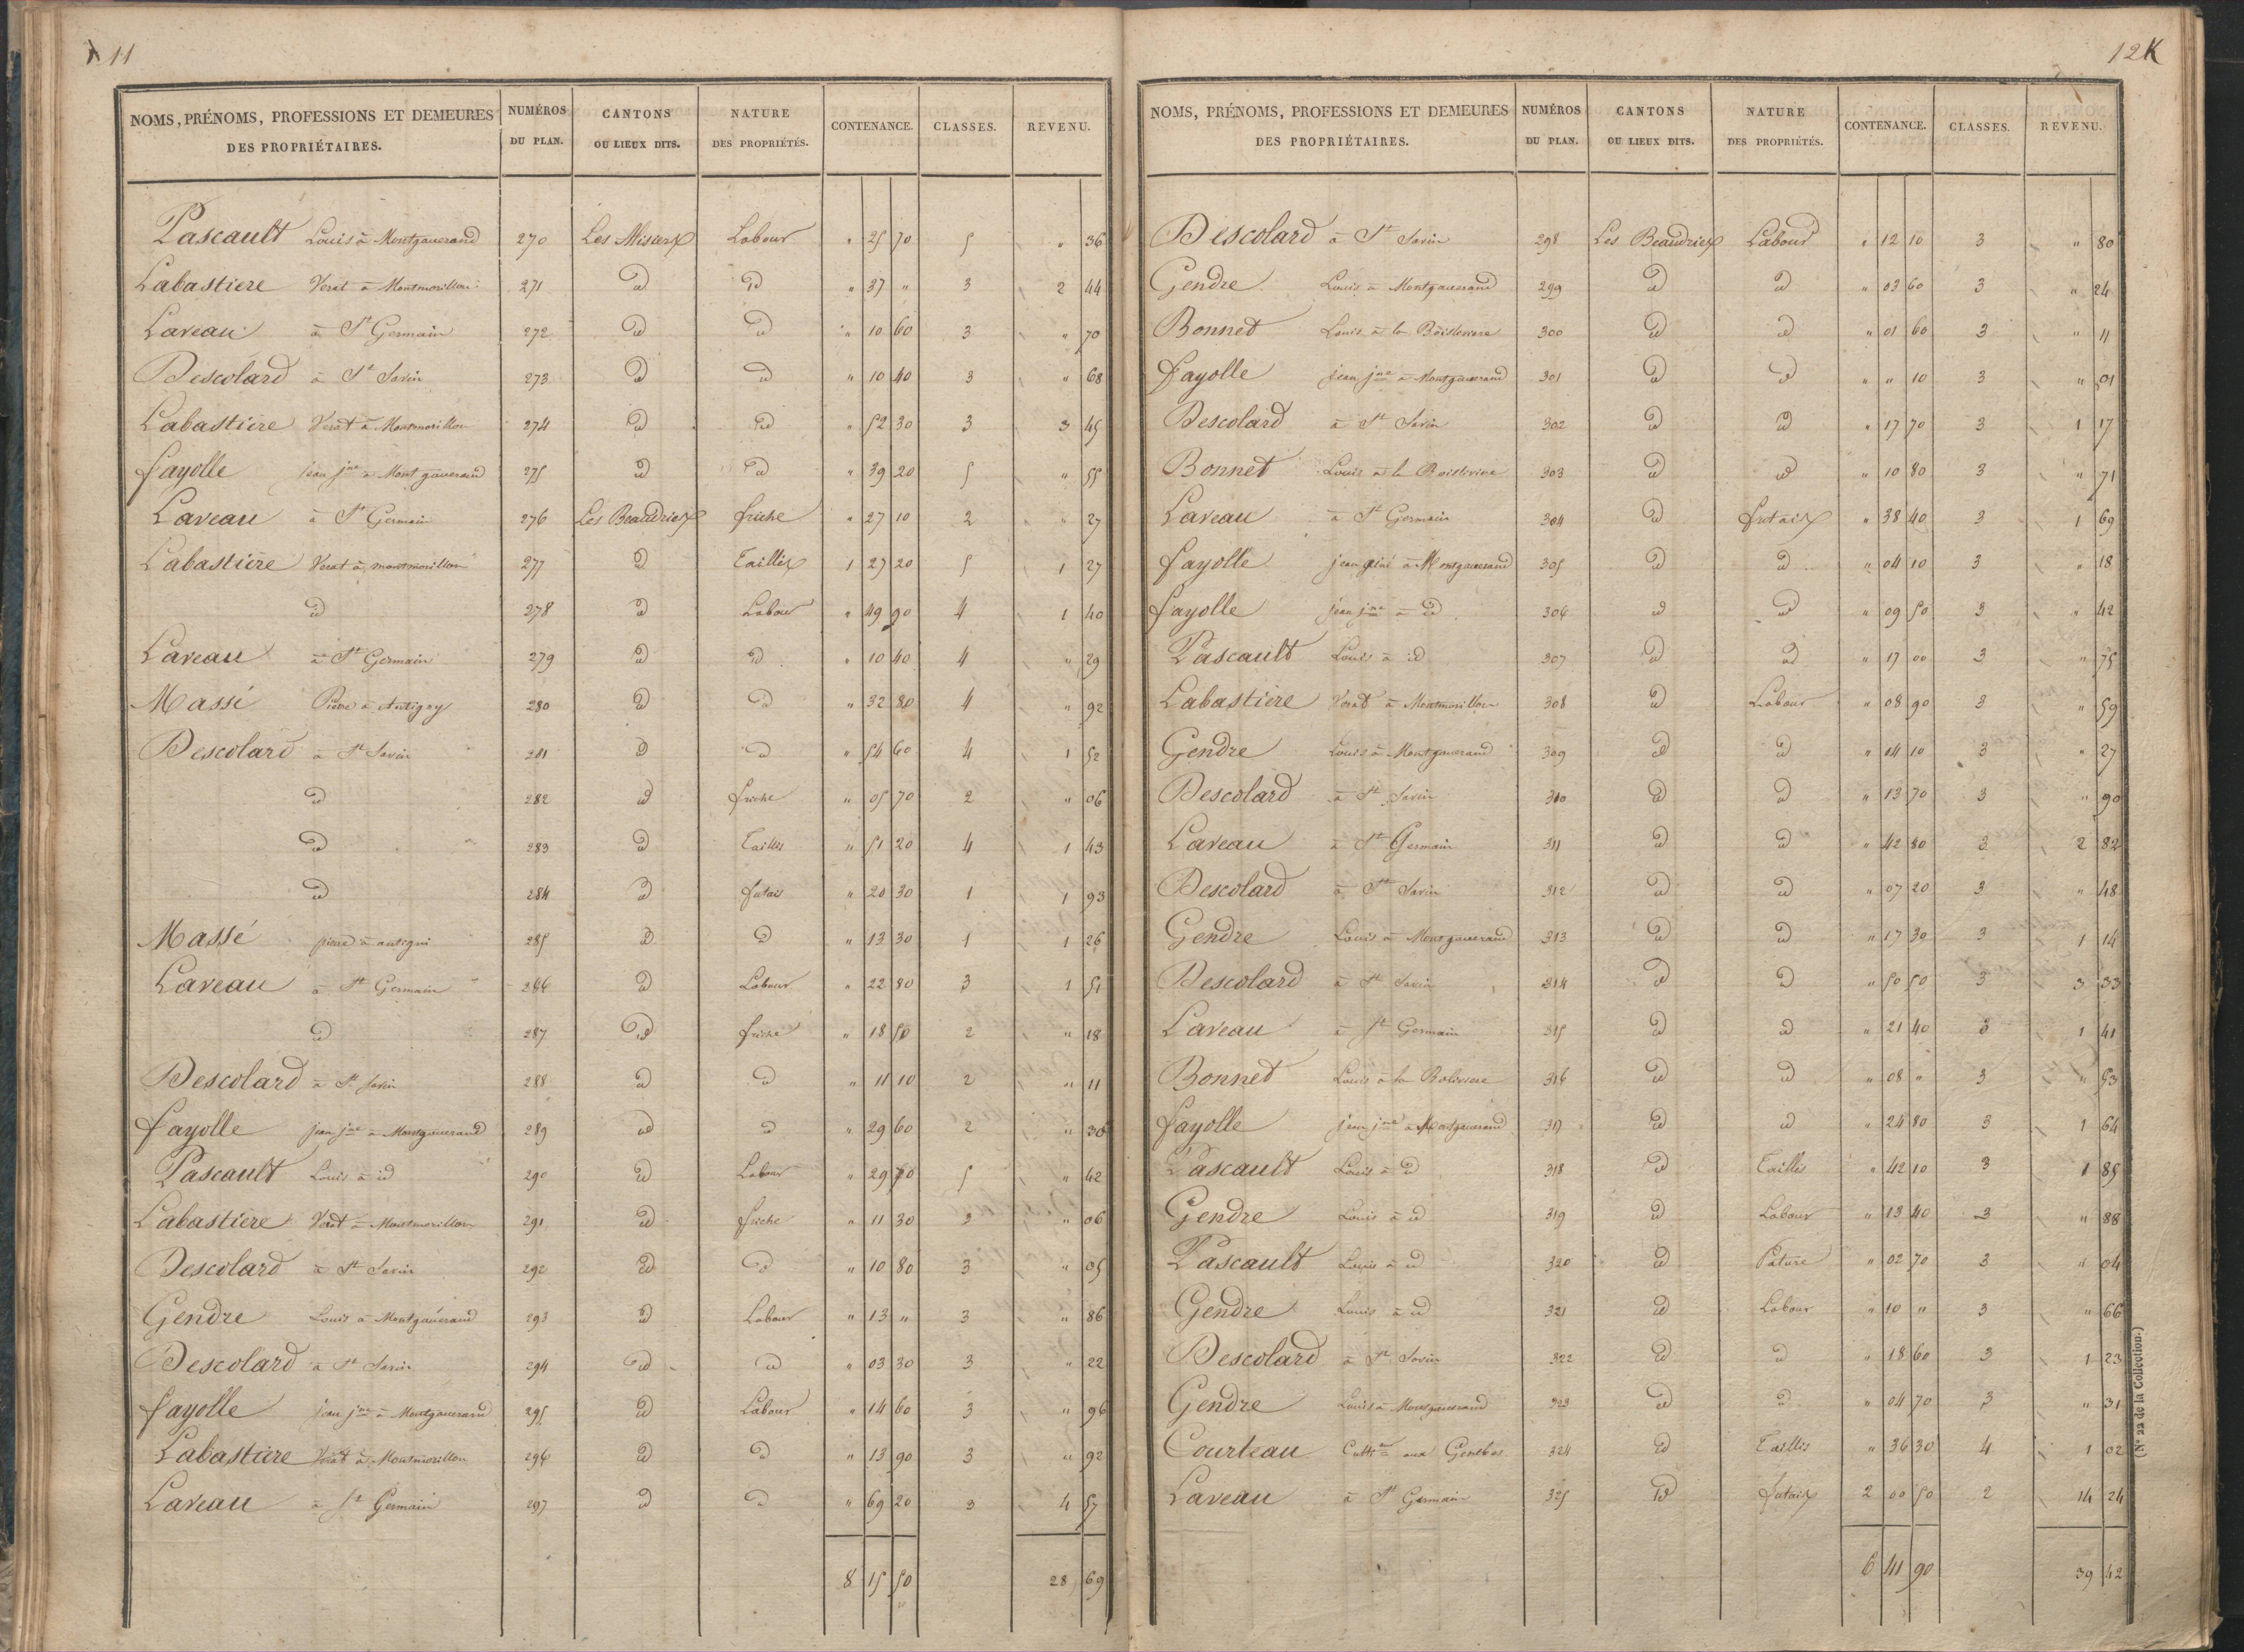 11
NOMS, PRÉNOMS, PROFESSIONS ET DEMEURES DES PROPRIÉTAIRES. NUMÉROS DU PLAN. CANTONS OU LIEUX DITS. NATURE DES PROPRIÉTÉS. CONTENANCE. CLASSES. REVENU.
Pascault Louis à Montgauerand 270 Labour " 25 70 5 " 36
Labastiere Verat à Montmorillon 271 id id " 37 " 3 2 44
Laveau à St Germain 272 id id " 10 60 3 " 70
Descolard à St Savin 273 id id " 10 40 3 " 68
Labastiere Verat à Montmorillon 274 id id " 52 30 3 3 45
fayolle jean jne à Montgauerand 275 id id " 39 20 5 " 55
Laveau à St Germain 276 Les Beaudriex friche " 27 10 2 " 27
Labastiere Verat à montmorillon 277 id Taillix 1 27 20 5 1 27
id 278 id Labour " 49 90 4 1 40
Laveau à St Germain 279 id id " 10 40 4 " 29
Massé Pierre à Antigny 280 id id " 32 80 4 " 92
Descolard à St Savin 281 id id " 54 60 4 1 52
id 282 id friche " 05 70 2 " 06
id 283 id Taillis " 51 20 4 1 43
id 284 id futais " 20 30 1 1 93
Massé pierre à antigni 285 id id " 13 30 1 1 26
Laveau à St Germain 286 id Labour " 22 80 3 1 51
id 287 id friche " 18 50 2 " 18
Descolard à St Savin 288 id id " 11 10 2 " 11
fayolle jean jne à Montgauerand 289 id id " 29 60 2 " 30
Pascault Louis à id 290 id Labour " 29 70 5 " 42
Labastiere Verat à Montmorillon 291 id friche " 11 30 3 " 06
Descolard à St Savin 292 id id " 10 80 3 " 05
Gendre Louis à Montgauerand 293 id Labour " 13 " 3 " 86
Descolard à St Savin 294 id id " 03 30 3 " 22
fayolle jean jne à Montgauerand 295 id Labour " 14 60 3 " 96
Labastiere Verat à Montmorillon 296 id id " 13 90 3 " 92
Laveau à St Germain 297 id id " 69 20 3 4 57
8 15 50 28 69
12
NOMS, PRÉNOMS, PROFESSIONS ET DEMEURES DES PROPRIÉTAIRES. NUMÉROS DU PLAN. CANTONS OU LIEUX DITS. NATURE DES PROPRIÉTÉS. CONTENANCE. CLASSES. REVENU.
Descolard à St Savin 298 Les Beaudriex Labour " 12 10 3 " 80
Gendre Louis à Montgauerand 299 id id " 03 60 3 " 24
Bonnet Louis à la 300 id id " 01 60 3 " 11
fayolle jean jne à Montgauerand 301 id id " " 10 3 " 01
Descolard à St Savin 302 id id " 17 70 3 1 17
Bonnet Louis à la 303 id id " 10 80 3 " 71
Laveau à St Germain 304 id futaix " 38 40 3 1 69
fayolle jean à Montgauerand 305 id id " 04 10 3 " 18
fayolle jean jne à id 306 id id " 09 50 3 " 42
Pascault Louis à id 307 id id " 17 00 3 " 75
Labastiere Verat à Montmorillon 308 id Labour " 08 90 3 " 59
Gendre Louis à Montgauerand 309 id id " 04 10 3 " 27
Descolard à St Savin 310 id id " 13 70 3 " 90
Laveau à St Germain 311 id id " 42 80 3 2 82
Descolard à St Savin 312 id id " 07 20 3 " 48
Gendre Louis à Montgauerand 313 id id " 17 30 3 1 14
Descolard à St Savin 314 id id " 50 50 3 3 33
Laveau à St Germain 315 id id " 21 40 3 1 41
Bonnet Louis à la 316 id id " 08 " 3 " 53
fayolle jean jne à Montgauerand 317 id id " 24 80 3 1 64
Pascault Louis à id 318 id Taillis " 42 10 3 1 85
Gendre Louis à id 319 id Labour " 13 40 3 " 88
Pascault Louis à id 320 id Pature " 02 70 3 " 04
Gendre Louis à id 321 id Labour " 10 " 3 " 66
Descolard à St Savin 322 id id " 18 60 3 1 23
Gendre Louis à Montgauerand 323 id id " 04 70 3 " 31
Courteau Cultr aux 324 id Taillis " 36 30 4 1 02
Laveau à St Germain 325 id futaix 2 00 50 2 14 24
6 41 90 39 42
(N° 22 de la Collection.)